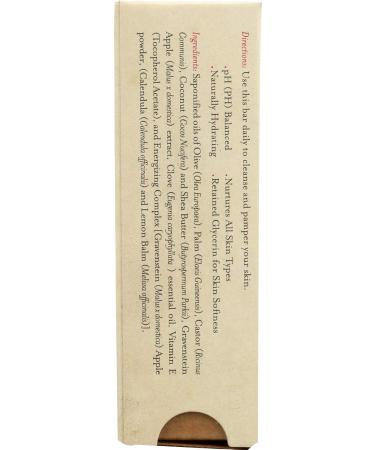 Directions: Use this bar daily to cleanse and pamper your skin.
.pH (PH) Balanced .Nurtures All Skin Types
.Naturally Hydrating .Retained Glycerin for Skin Softness
Ingredients: Saponified oils of Olive (Olea Europaea), Palm (Elaeis Guineensis), Castor (Ricinus
Communis), Coconut (Cocos Nucifera) and Shea Butter (Butyrospermum Parkii), Gravenstein
Apple (Malus x domestica) extract, Clove (Eugenia caryophyllata ) essential oil, Vitamin E
(Tocopherol Acetate), and Energizing Complex [Gravenstein (Malus x domestica) Apple
powder, (Calendula (Calendula officinalis) and Lemon Balm (Melissa officinalis)].